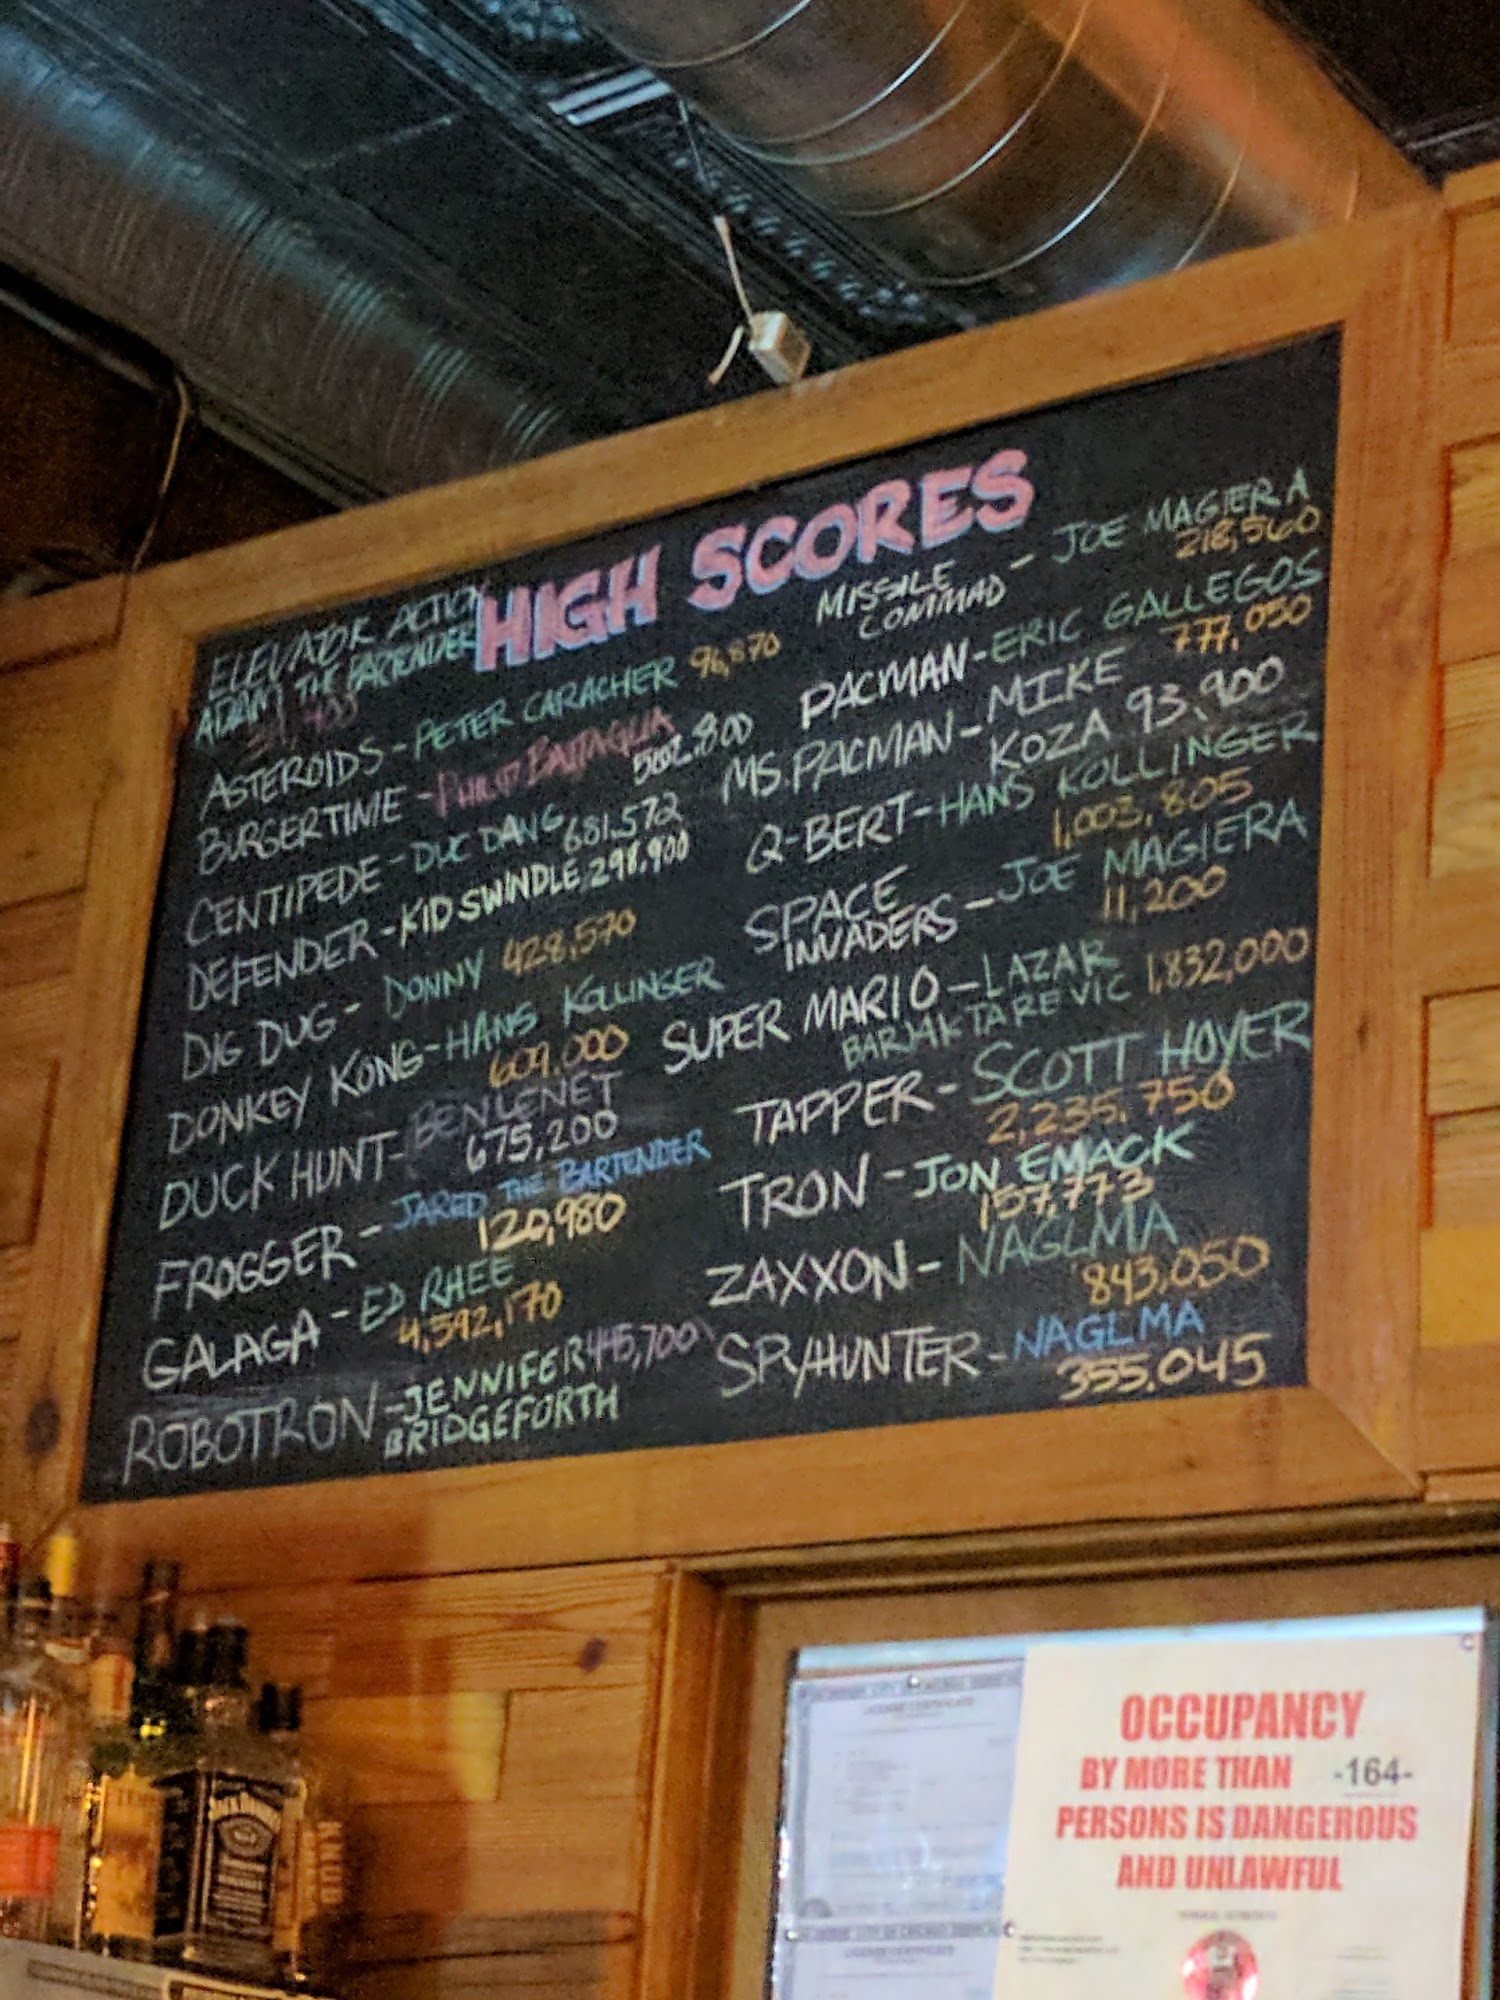 HIGH SCORES
ELEVATOR ACTION
ADAM THE BARTENDER
ASTEROIDS - PETER CARACHER 96,870
BURGERTIME -
502,800
CENTIPEDE - DUC DANG 681,572
DEFENDER - KID SWINDLE 298,900
DIG DUG - DONNY 428,570
DONKEY KONG - HANS KOLLINGER
609,000
DUCK HUNT - BEN LENET
675,200
FROGGER - JARED THE BARTENDER
120,980
GALAGA - ED RHEE
4,592,170
ROBOTRON - JENNIFER 445,700
BRIDGEFORTH
MISSILE - JOE MAGIERA
COMMAD 218,560
PACMAN - ERIC GALLEGOS
777,050
MS. PACMAN - MIKE
KOZA 93,900
Q-BERT - HANS KOLLINGER
1,003,805
SPACE
INVADERS - JOE MAGIERA
11,200
SUPER MARIO - LAZAR 1,832,000
BARJAKTAREVIC
TAPPER - SCOTT HOYER
2,235,750
TRON - JON EMACK
157,773
ZAXXON - NAGLMA
843,050
SPYHUNTER - NAGLMA
355,045
OCCUPANCY
BY MORE THAN -164-
PERSONS IS DANGEROUS
AND UNLAWFUL